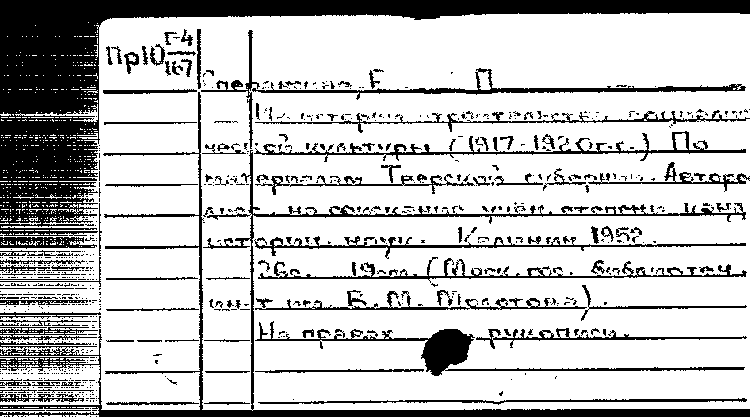 Пр10 Г-4/167
Сперанская, Е. П
Из истории строительства социалис
ческой культуры (1917-1920гг.) По
материалам Тверской губернии. Авторе
дисс. на соискание учён. степени канд
историч. наук. Калинин, 1952.
26с. 19см. (Моск. гос. библиотеч.
ин-т им. В. М. Молотова).
На правах рукописи.